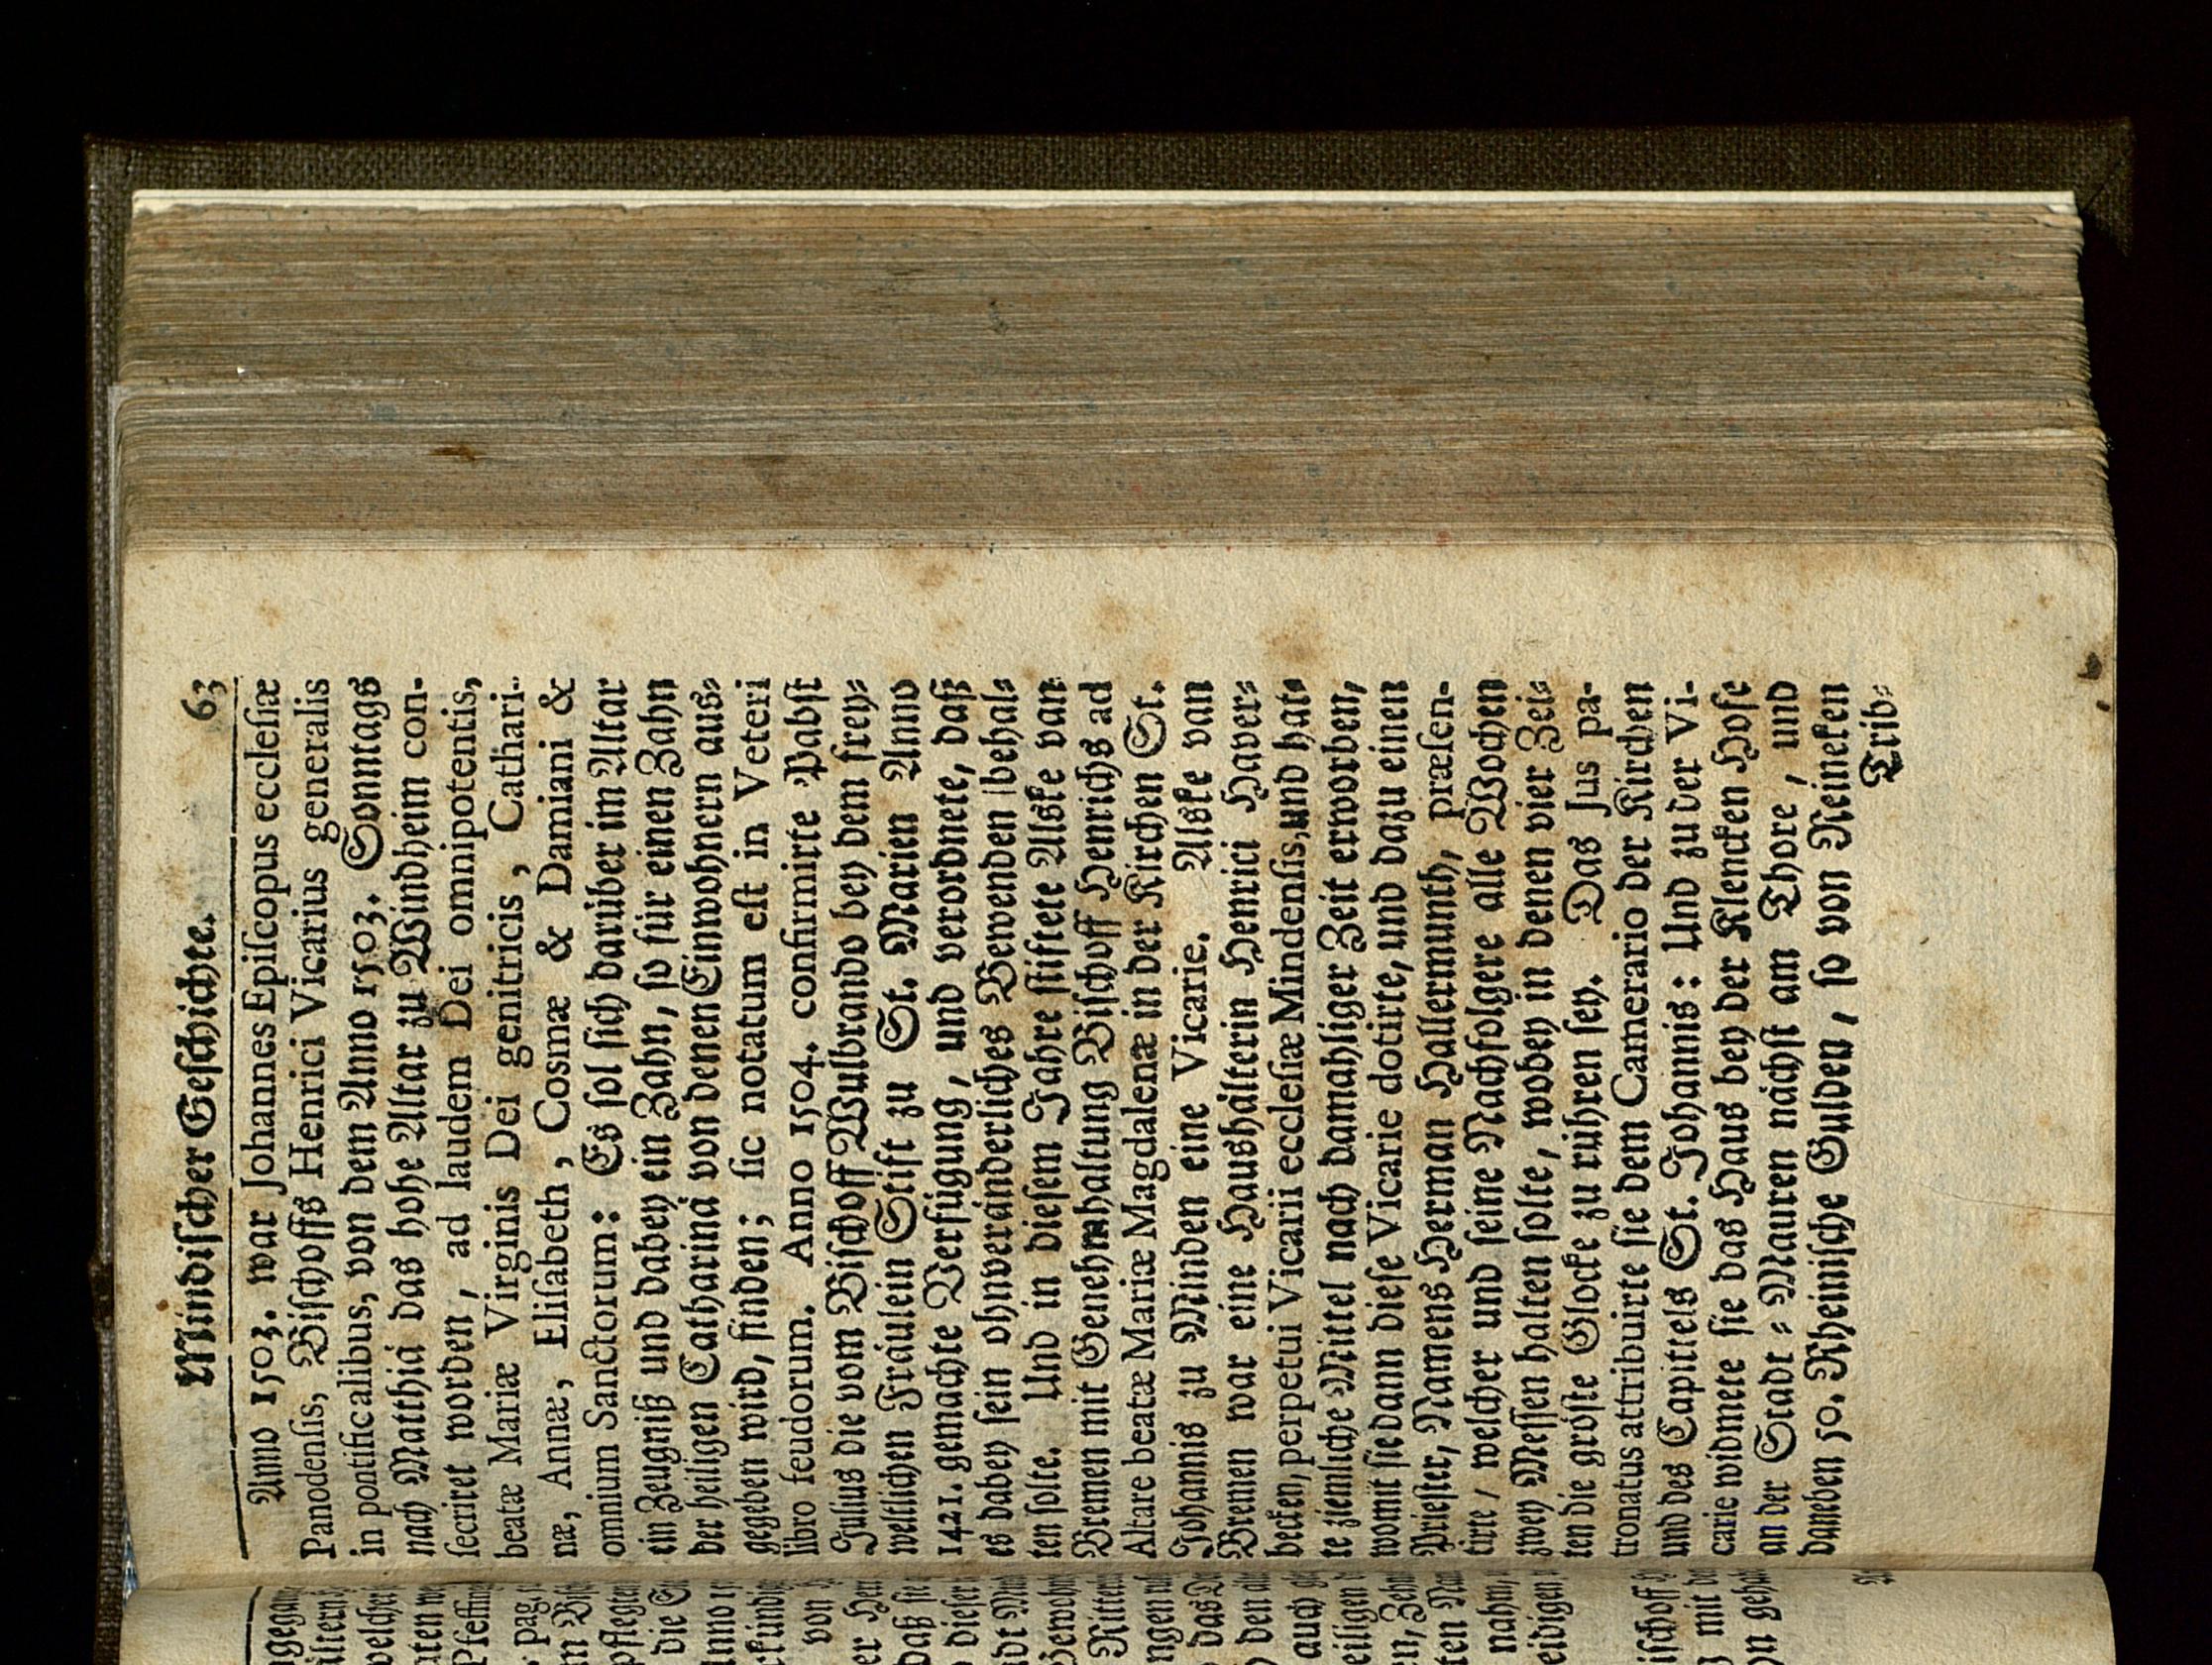 Mindiſcher Geſchichte. 63
Anno 1503. war Johannes Epiſcopus eccleſiæ
Panodenſis, Biſchoffs Henrici Vicarius generalis
in pontificalibus, von dem Anno 1503. Sonntags
nach Matthiä das hohe Altar zu Windheim con-
ſecriret worden, ad laudem Dei omnipotentis,
beatæ Mariæ Virginis Dei genitricis, Cathari-
næ, Annæ, Eliſabeth, Cosmæ & Damiani &
omnium Sanctorum: Es ſol ſich darüber im Altar
ein Zeugniß und dabey ein Zahn, ſo für einen Zahn
der heiligen Catharinä von denen Einwohnern aus-
gegeben wird, finden; ſic notatum eſt in Veteri
libro feudorum. Anno 1504. confirmirte Pabſt
Julius die vom Biſchoff Wulbrando bey dem frey-
weltlichen Fräulein Stift zu St. Marien Anno
1421. gemachte Verfügung, und verordnete, daß
es dabey ſein ohnveränderliches Bewenden behal-
ten ſolte. Und in dieſem Jahre ſtiftete Alske van
Bremen mit Genehmhaltung Biſchoff Henrichs ad
Altare beatæ Mariæ Magdalenæ in der Kirchen St.
Johannis zu Minden eine Vicarie. Alske van
Bremen war eine Haushälterin Henrici Haver-
becken, perpetui Vicarii eccleſiæ Mindenſis, und hat-
te ziemliche Mittel nach damahliger Zeit erworben,
womit ſie dann dieſe Vicarie dotirte, und dazu einen
Prieſter, Namens Herman Hallermunth, præſen-
tirte / welcher und ſeine Nachfolgere alle Wochen
zwey Meſſen halten ſolte, wobey in denen vier Zei-
ten die gröſte Glocke zu rühren ſey. Das Jus pa-
tronatus attribuirte ſie dem Camerario der Kirchen
und des Capittels St. Johannis: Und zu der Vi-
carie widmete ſie das Haus bey der Klencken Hofe
an der Stadt-Mauren nächſt am Thore, und
daneben 50. Rheiniſche Gulden, ſo von Reineken
Trib-